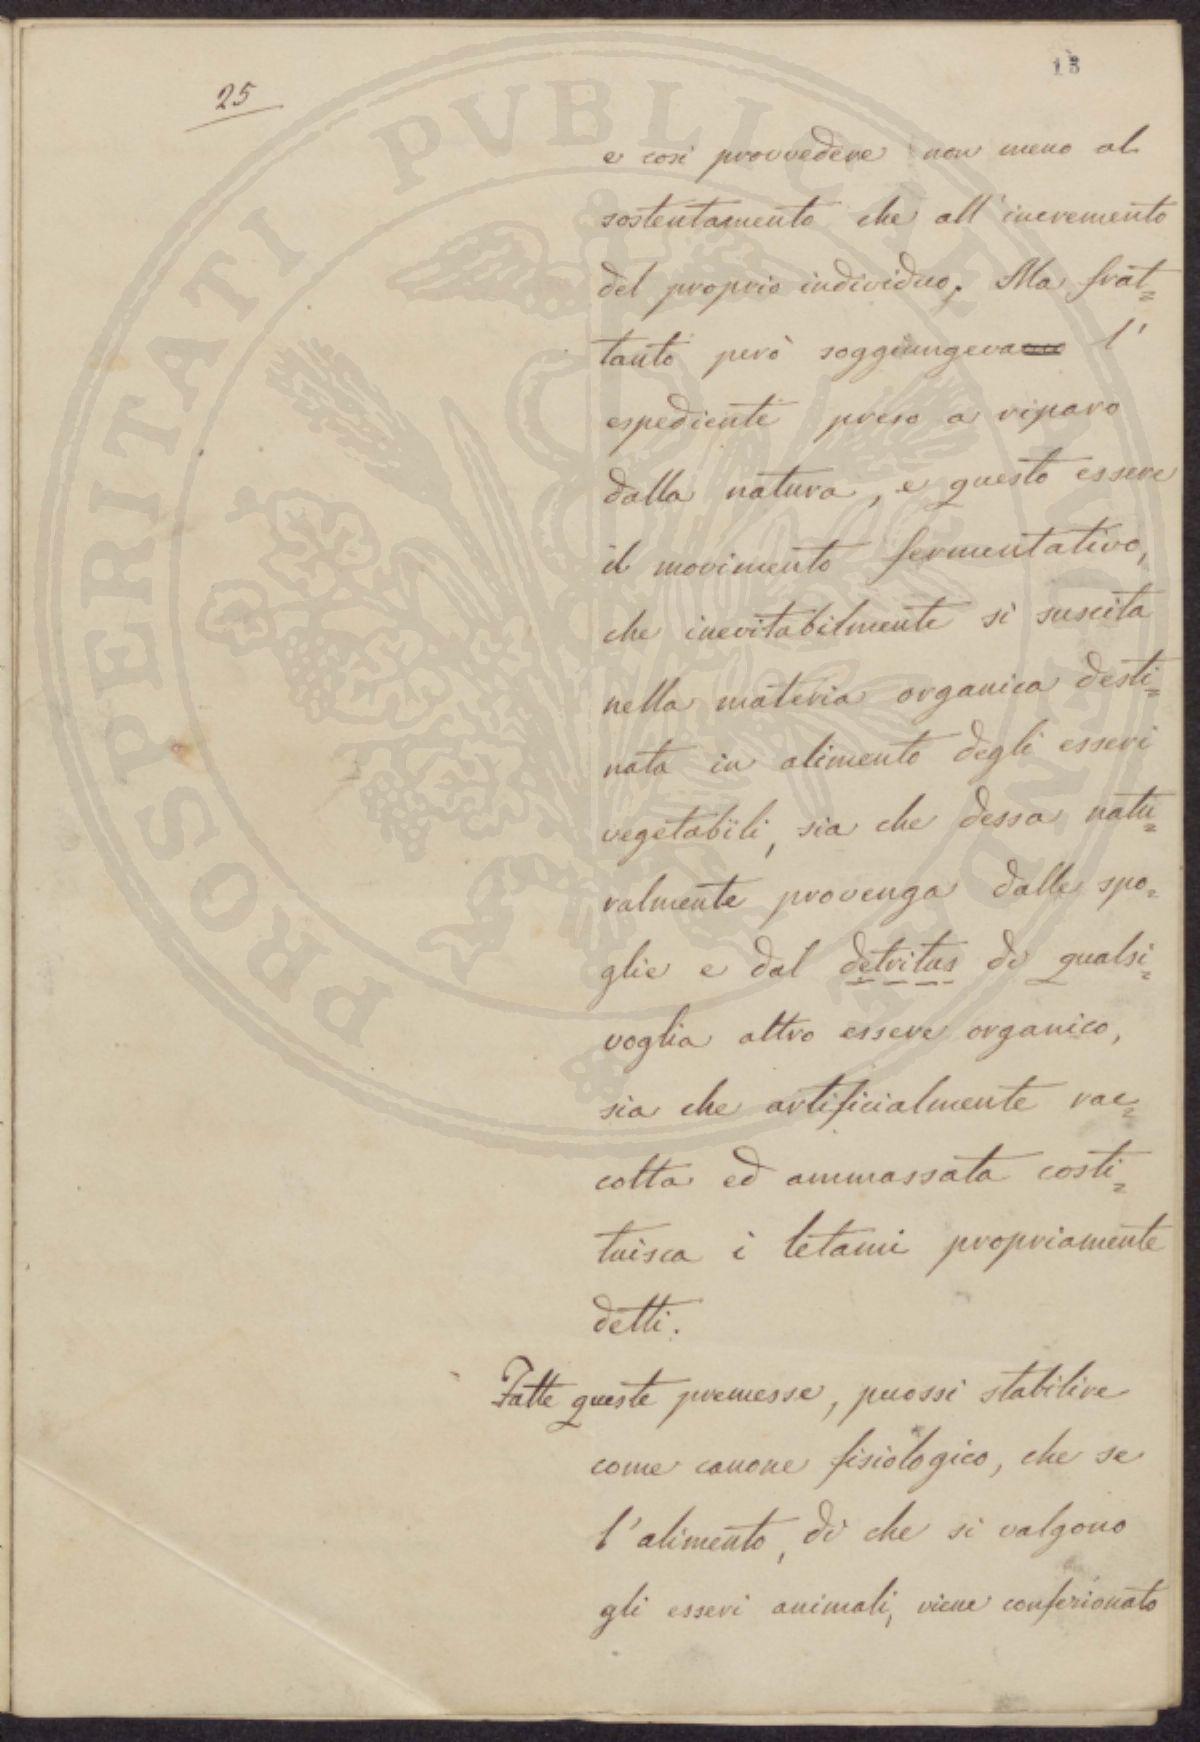 25
13
e così provvedere non meno al
sostentamento che all'incremento
del proprio individuo. Ma frat=
tanto però soggiungeva l'
espediente preso a riparo
dalla natura, e questo essere
il movimento fermentativo,
che inevitabilmente si suscita
nella materia organica desti=
nata in alimento degli esseri
vegetabili, sia che dessa natu=
ralmente provenga dalle spo=
glie e dal detritus di qualsi=
voglia altro essere organico,
sia che artificialmente rac=
colta ed ammassata costi=
tuisca i letami propriamente
detti.
Fatte queste premesse, puossi stabilire
come canone fisiologico, che se
l'alimento, di che si valgono
gli esseri animali, viene confezionato
PROSPERITATI PVBLICAE AVGENDAE